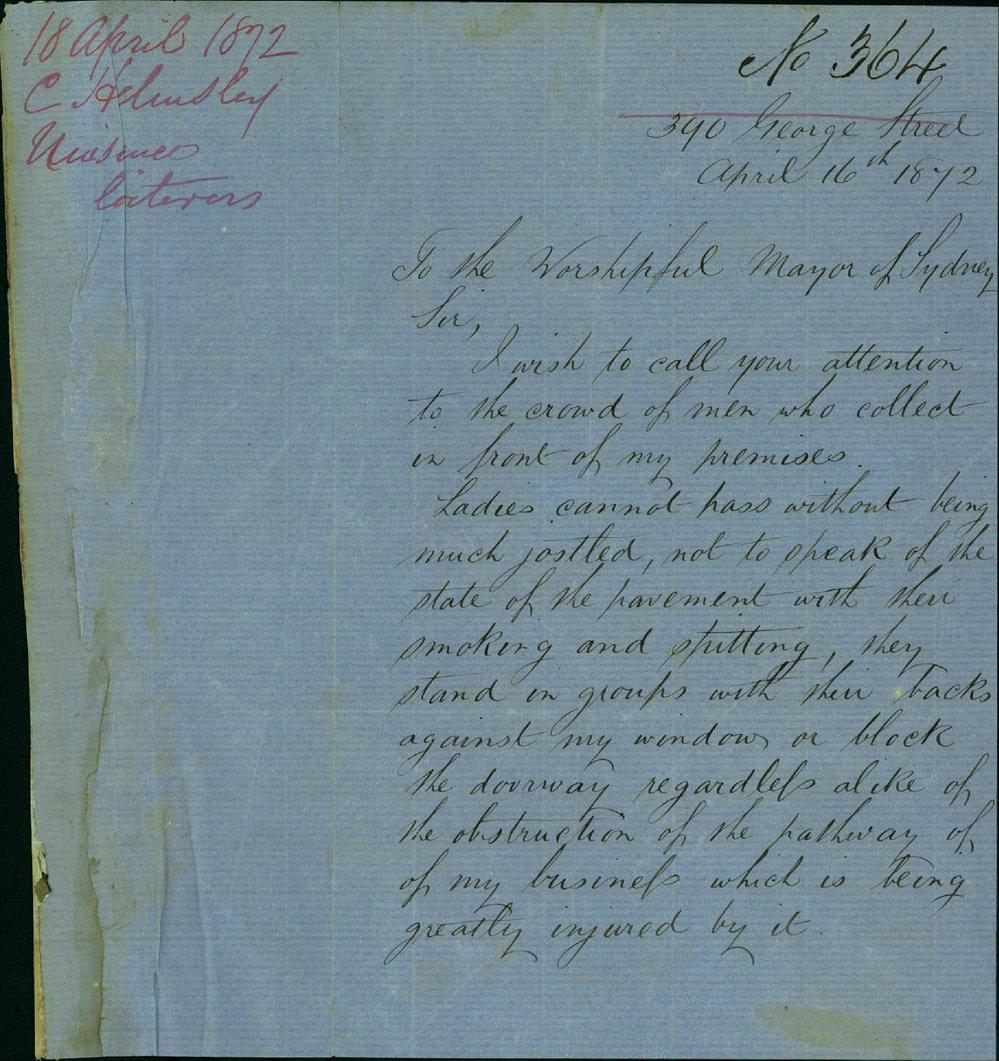 18 April 1872
C Helmsley
Nuisance
loiterers
No 364
390 George Street
April 16th 1872
To the Worshipful Mayor of Sydney
Sir,
I wish to call your attention
to the crowd of men who collect
in front of my premises.
Ladies cannot pass without being
much jostled, not to speak of the
state of the pavement with their
smoking and spitting, they
stand in groups with their backs
against my window or block
the doorway regardless alike of
the obstruction of the pathway of
of my business which is being
greatly injured by it.